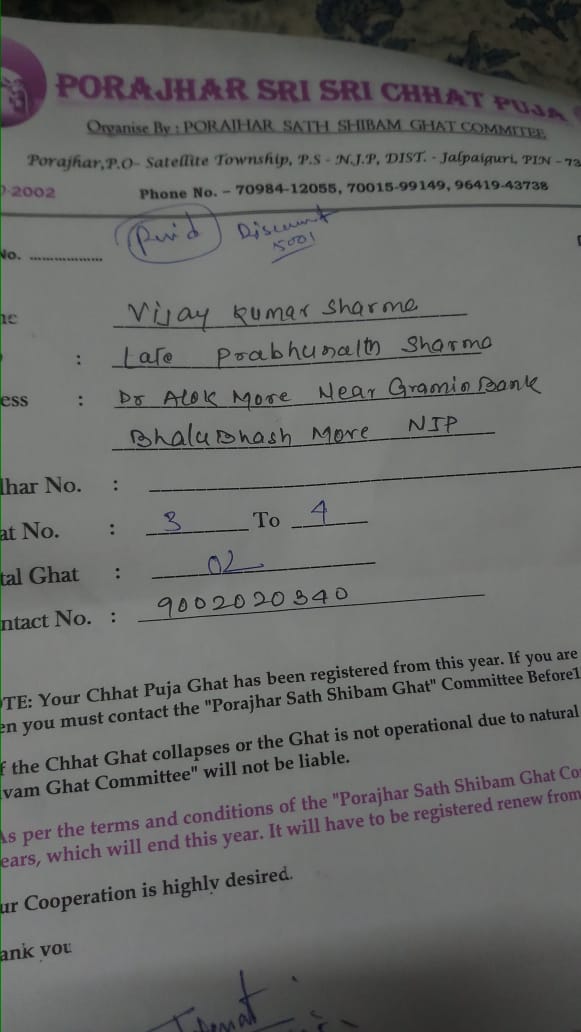 PORAJHAR SRI SRI CHHAT PUJA
Organise By : PORAJHAR SATH SHIBAM GHAT COMMITEE
Porajhar, P.O- Satellite Township, P.S - N.J.P, DIST. - Jalpaiguri, PIN - 73
-2002
Phone No. - 70984-12055, 70015-99149, 96419-43738
Paid Discount
500/
No. ..................
me Vijay Kumar Sharma
: Late Prabhunath Sharma
ess : Dr Alok More Near Gramin Bank
BhaluBhash More NJP
dhar No. :
at No. : 3 To 4
tal Ghat : 02
ntact No. : 9002020340
OTE: Your Chhat Puja Ghat has been registered from this year. If you are
en you must contact the "Porajhar Sath Shibam Ghat" Committee Before1
f the Chhat Ghat collapses or the Ghat is not operational due to natural
vam Ghat Committee" will not be liable.
As per the terms and conditions of the "Porajhar Sath Shibam Ghat Co
ears, which will end this year. It will have to be registered renew from
ur Cooperation is highly desired.
ank you